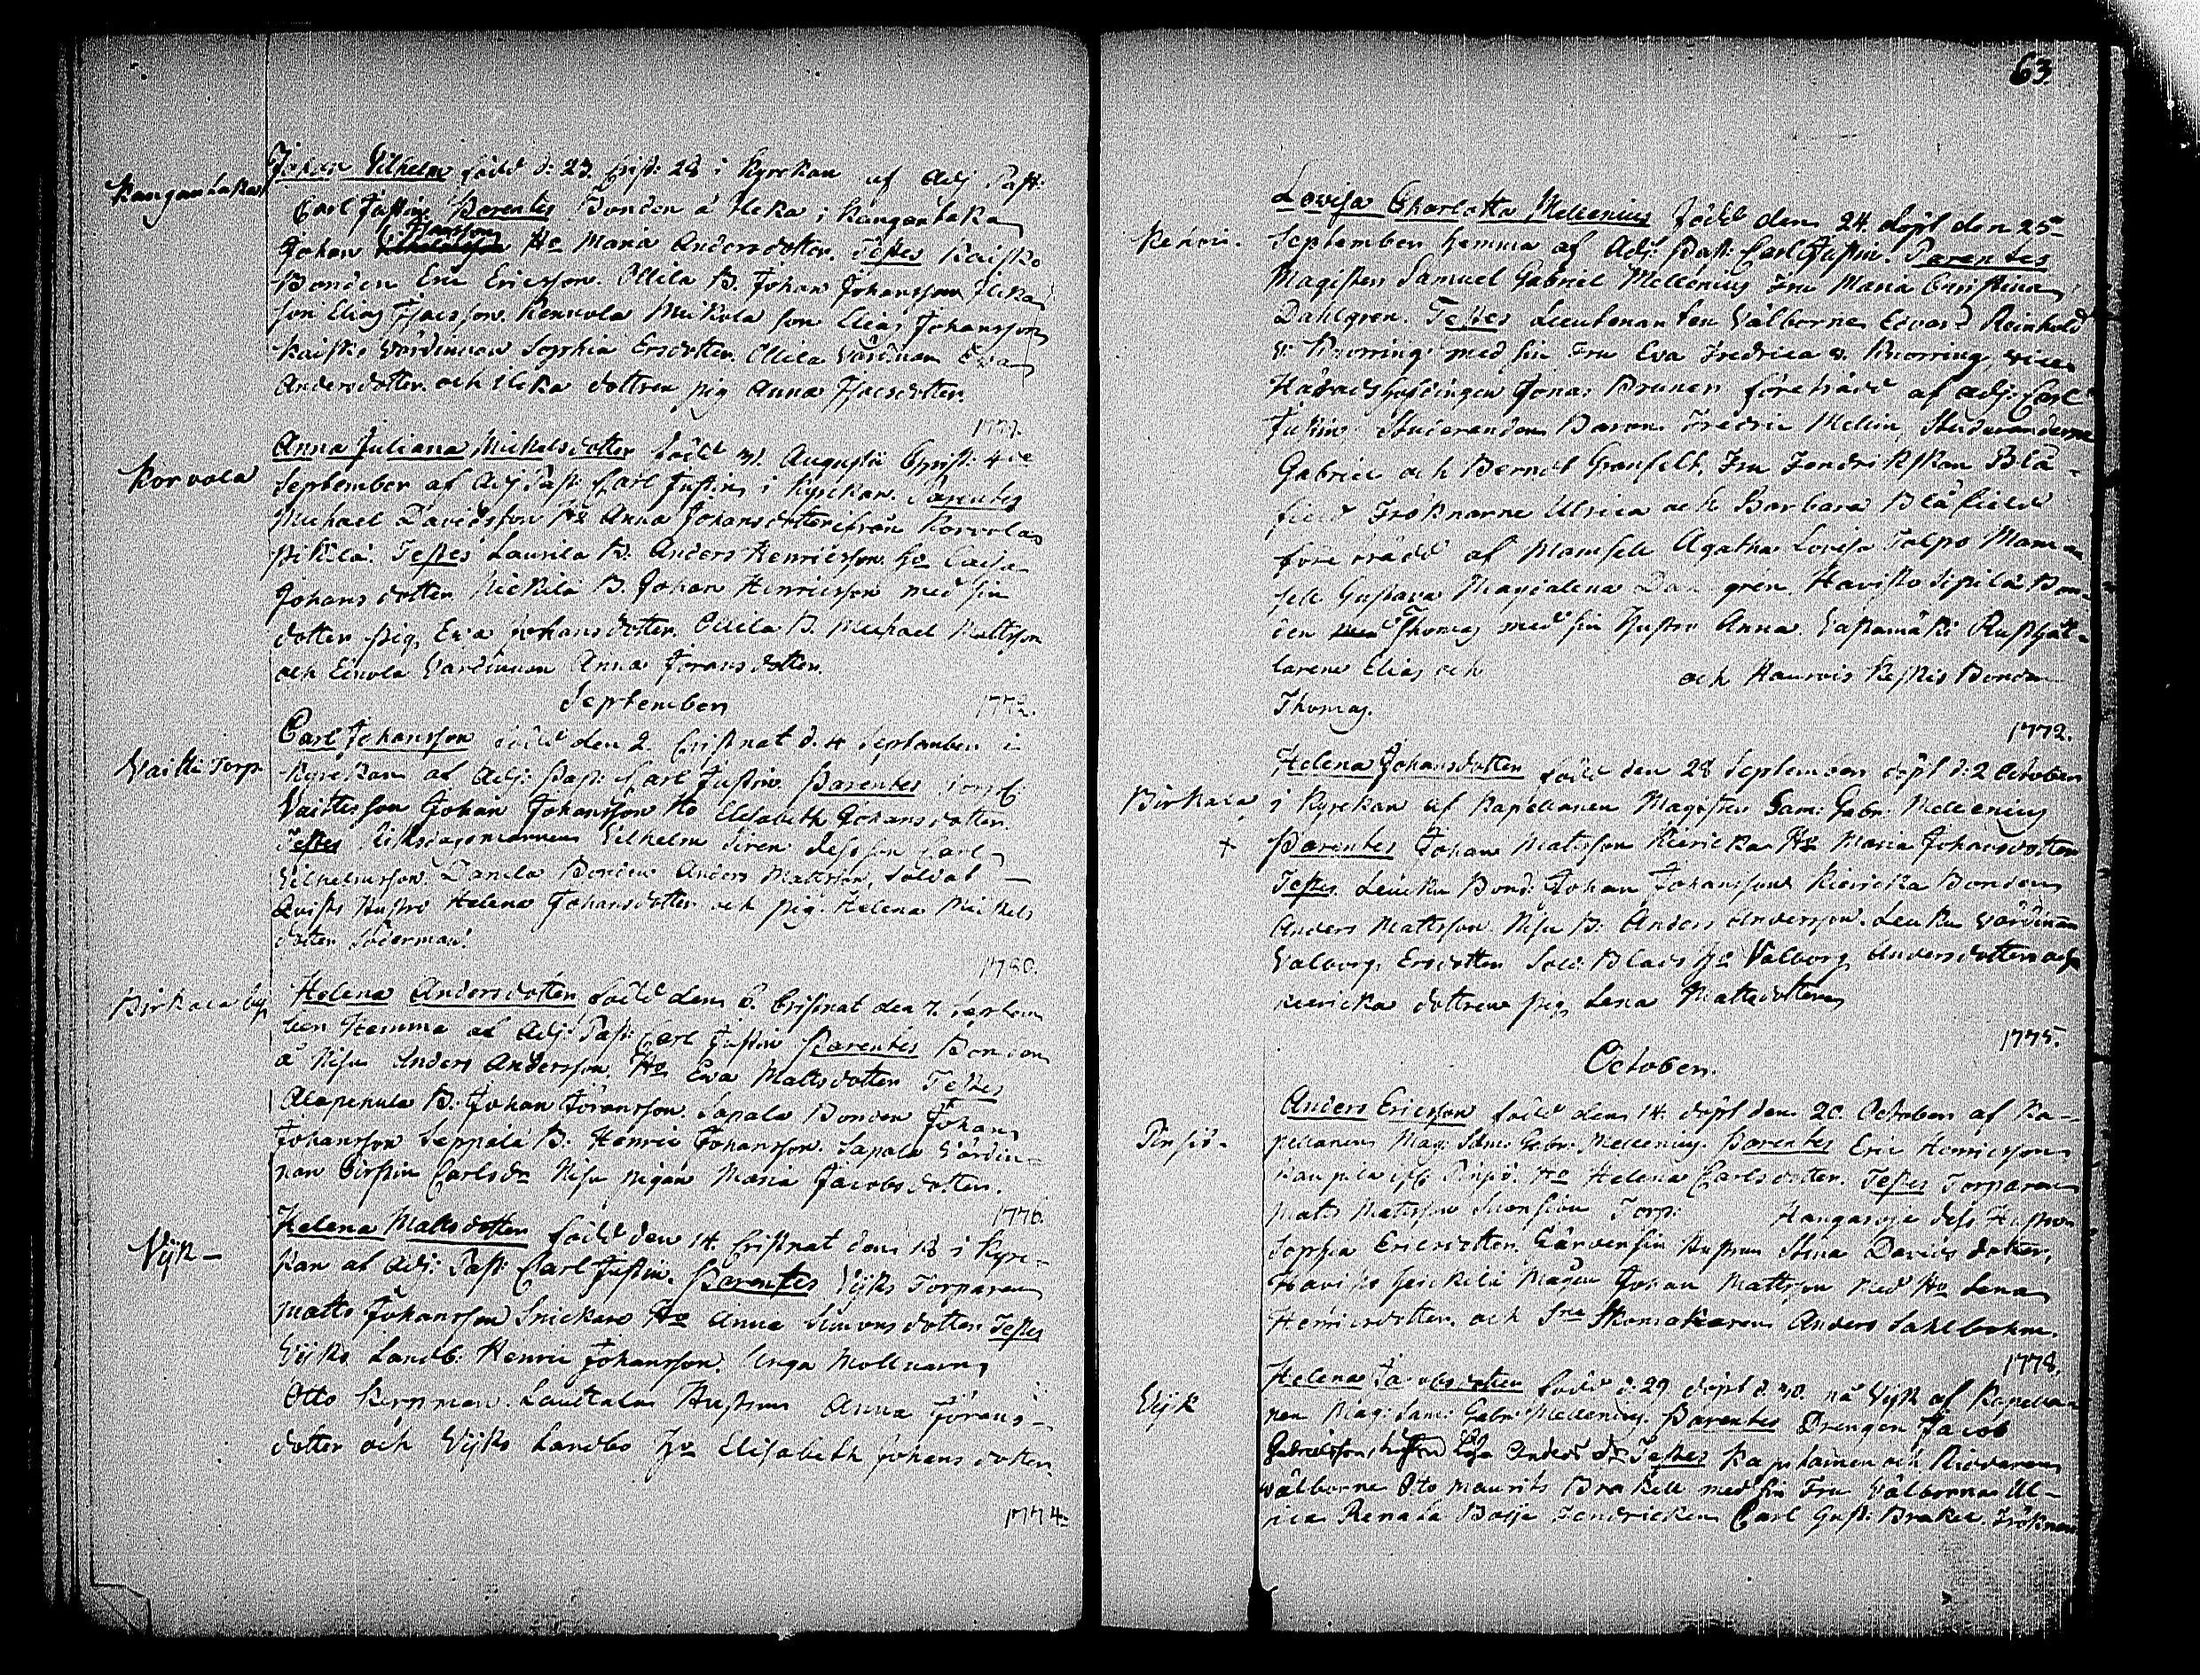 63
Kangantaka
Johan Vilhelm född d: 23. Crist: 28 i Kyrkan af Adj Past:
Carl Justin. Parentes Bonden å Ileka i Kangantaka
Isacsson
Johan Ho Maria Andersdotter. Testes Kaisko
Bonden Eric Ericsson. Ollila B. Johan Johansson Ileka
son Elias Isacsson. Mikola son Elias Johansson
Kaisko Värdinnan Sophia Ersdotter. Ollila Värdinnan Eva
Andersdotter och Ileka dottren pig Anna Isacsdotter.
1777.
Korvola
Anna Juliana Mickelsdotter född 31. Augustii Christ: 4de
September af Adj Past: Carl Justin i Kyrkan. Parentes
Michael Davidsson Ho Anna Johansdotter ifrån Korvola
Pikila. Testes Laurila B. Anders Henricsson Ho Caisa
Johans dotter Mickila B. Johan Henricsson med sin
dotter pig. Eva Johansdotter. Ollila B. Michael Mattsson
och Einola Värdinnan Anna Jöransdotter.
September 1772.
Vaitti Torp
Carl Johansson född den 2. Cristnat d. 4 September i
Kyrkan af Adj: Past: Carl Justin. Parentes
Johan Johansson Ho Elisabeth Johansdotter.
Testes Riksdagsmannen Vilhelm Siren. dess son Carl
Vilhelmsson. Danila Bonden Anders Mattsson, Soldat
Qvists Hustru Helena Johansdotter och pig. Helena Mickels
dotter Söderman.
1780.
Birkala by
Helena Andersdotter född den 6. Cristnat den 7. Septem
ber Hemma af Adj: Past: Carl Justin Parentes Bonden
å Nisu Anders Andersson. Ho Eva Mattsdotter Testes
Alapenula B. Johan Jöransson. Sapala Bonden Johan
Johansson Seppälä B. Henric Johansson. Sapala Värdin-
nan Carlsdr Nisu pigan Maria Jacobsdotter.
1776.
Vijk-
Helena Mattsdotter född den 14. Cristnat den 18 i Kyr-
kan af Adj: Past: Carl Justin. Parentes Vijks Torparen
Matts Johansson Snickare Ho Anna Simonsdotter Testes
Vijks Landb: Henric Johansson. Unga
Otto Hustrun Anna Jörans-
dotter och Vijks Landbo Ho Elisabeth Johans dotter.
1774.
Rehoi.
Lovisa Charlotta Mellenius född den 24. döpt den 25
September hemma af Adj: Past: Carl Justin. Parentes
Magister Samuel Gabriel Mellenius Fru Maria Christina
Dahlgren. Testes Lieutenanten Välborne Edvard Reinhold
v. Knorring med sin Fru Eva Fredrica v. Knorring, vice
Häradshöfdingen Jonas Bruner företrädd af Adj: Carl
Justin Studeranden Baron Fredric Mellin, Studeranderne
Gabriel och Berndt Granfelt. Fru Fendrikskan Blå-
field Fröknarne Ulrica och Barbara Blåfield
företrädd af Mamsell Agatha Lovisa Talpo Mam-
sell Gustava Magdalena Dahlgren. Havisto Sipilä Bon-
den Thomas med sin Hustru Anna. Vasamäki Rusthål-
larene Elias och och Haurois Keskis Bonden
Thomas.
1772.
Birkala
+
Helena Johansdotter född den 28 September döpt d: 2 October
i Kyrkan af Kapellanen Magister Sam: Gabr: Mellenius
Parentes Johan Mattsson Kiericka Ho Maria Johansdotter
Testes Leuku Bond: Johan Johansson Kiericka Bonden
Anders Mattsson. Nisu B: Anders Andersson. Leuku Värdinnan
Valborg, Ersdotter Sold: Blads Ho Valborg Andersdotter och
Kiericka dottren pig, Lena Mattsdotter
1775.
October.
Pinsiö-
Anders Ericsson född den 14. döpt den 20. October af Ka-
pellanen Mag: Sam: Gabr: Mellenius. Parentes Eric Henricsson
Kaupila ifr Pinsiö. Ho Helena Carlsdotter. Testes Torparen
Matts Mattsson Torp: Hangasoja dess Hustru
Sophia Ericsdotter. Hustrun Stina Davids dotter,
Havisto Heickilä Mågen Johan Mattsson med Ho Lena
Henricsdotter. och Skomakaren Anders Sahlbohm.
1778.
Vijk
Helena Jacobsdotter född d: 29 döpt d. 30. på Vijk af Kapella-
nen Mag: Sam: Gabr: Mellenius. Parentes Drengen Jacob
Gabrielsson, hustrun Lisa Anders dr Testes Kapitainen och Riddaren
Välborne Otto Maurits Brakell med sin Fru Välborna Ul-
rica Renata Boije Fendricken Carl Gust: Brakel. Fröknar